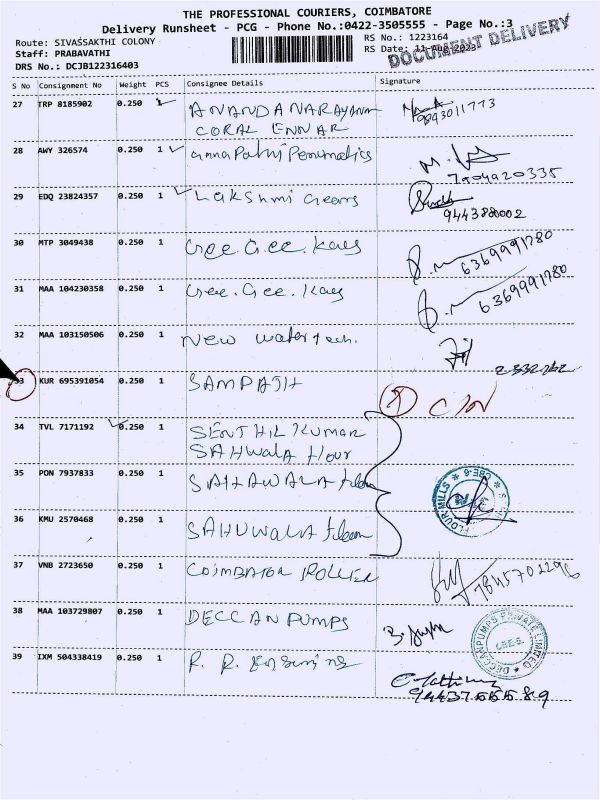 THE PROFESSIONAL COURIERS, COIMBATORE
Delivery Runsheet - PCG - Phone No.:0422-3505555 - Page No.:3
Route: SIVASSAKTHI COLONY
Staff: PRABAVATHI
DRS No.: DCJB122316403
RS No.: 1223164
RS Date: 11-Aug-2023
DOCUMENT DELIVERY
S No Consignment No Weight PCS Consignee Details Signature
27 TRP 8185902 0.250 1 ANANDA NARAYANA
CORAL ENNAR
9843011773
28 AWY 326574 0.250 1 Annapathi Penumatics
7904920335
29 EDQ 23824357 0.250 1 Lakshmi Gears
944388002
30 MTP 3049438 0.250 1 Gee. Gee. Kays 6369991780
31 MAA 104230358 0.250 1 Gee. Gee. Kays 6369991780
32 MAA 103150506 0.250 1 New water tech.
2332762
33 KUR 695391054 0.250 1 SAMPATH
34 TVL 7171192 0.250 1 SENTHIL KUMAR
SAHWALA flour
35 PON 7937833 0.250 1 SAHAWALA
FLOUR MILLS * CBE-6 *
36 KMU 2570468 0.250 1 SAHUWALA
37 VNB 2723650 0.250 1 COIMBATOR ROLLER 7845702296
38 MAA 103729807 0.250 1 DECCAN PUMPS
DECCAN PUMPS PRIVATE LIMITED * CBE-6.
39 IXM 504338419 0.250 1 R. R.
9443755589